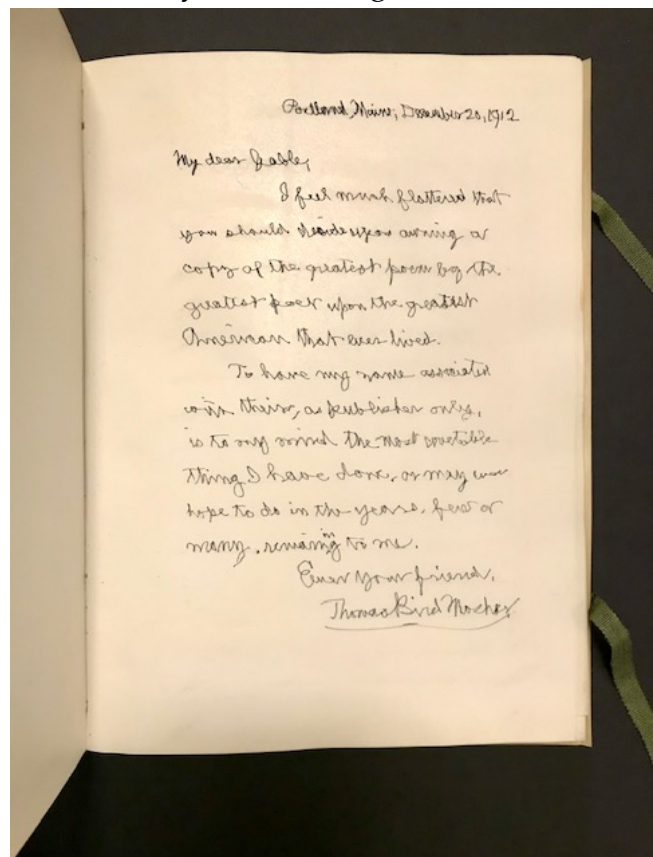 Portland, Maine, December 20, 1912
My dear Gable,
I feel much flattered that
you should decide upon owning a
copy of the greatest poem by the
greatest poet upon the greatest
American that ever lived.
To have my name associated
with theirs, as publisher only,
is to my mind the most covetable
thing I have done, or may ever
hope to do in the years, few or
many, remaining to me.
Ever your friend,
Thomas Bird Mosher